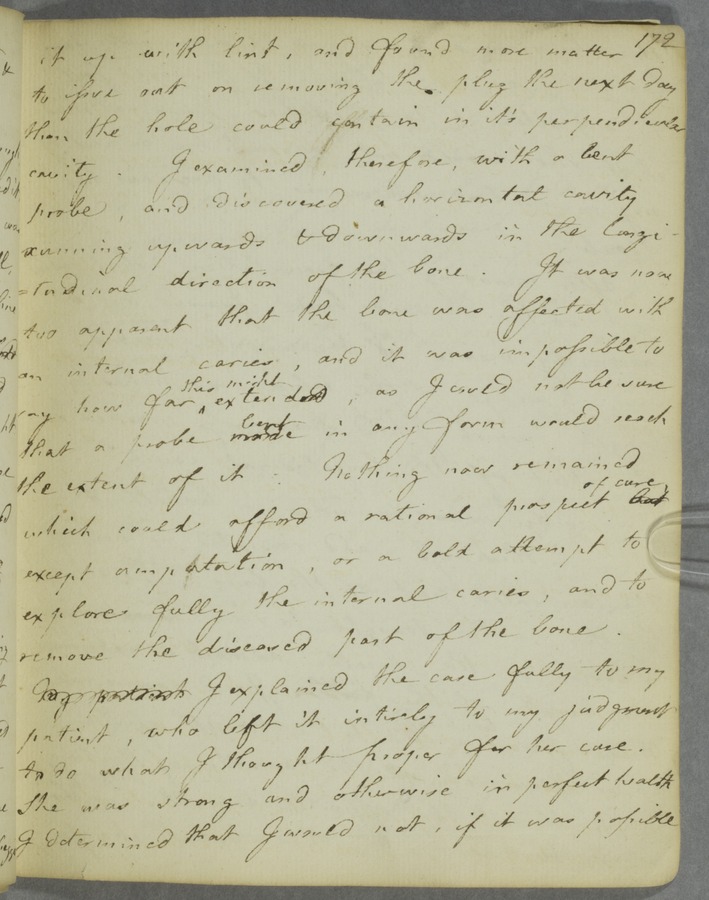 172
it up with lint, and found more matter
to issue out on removing the plug the next day
than the hole could contain in it's perpendicular
cavity. I examined, therefore, with a bent
probe, and discovered a horizontal cavity
running upwards & downwards in the longi-
=tudinal direction of the bone. It was now
too apparent that the bone was affected with
an internal caries, and it was impossible to
say how far this might extend, as I could not be sure
that a probe bent in any form would reach
the extent of it. Nothing now remained
which could afford a rational prospect of cure
except amputation, or a bold attempt to
explore fully the internal caries, and to
remove the diseased part of the bone.
I explained the case fully to my
patient, who left it intirely to my judgment
to do what I thought proper for her case.
She was strong and otherwise in perfect health
I determined that I would not, if it was possible